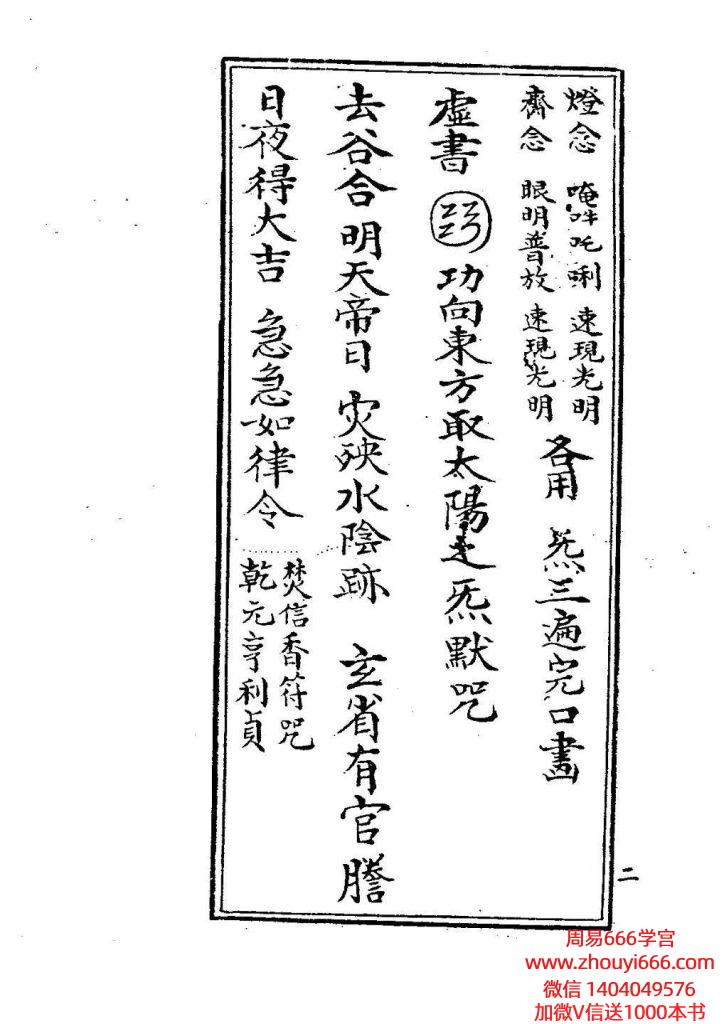 燈念 唵吽吒唎 速現光明
齋念 眼明普放 速現光明
各用 炁三遍完口畫
虛書 功向東方取太陽之炁默咒
去谷合明天帝日 灾殃水陰跡 玄省有官謄
日夜得大吉 急急如律令
焚信香符咒
乾元亨利貞
二
周易666学宫
www.zhouyi666.com
微信 1404049576
加微V信送1000本书